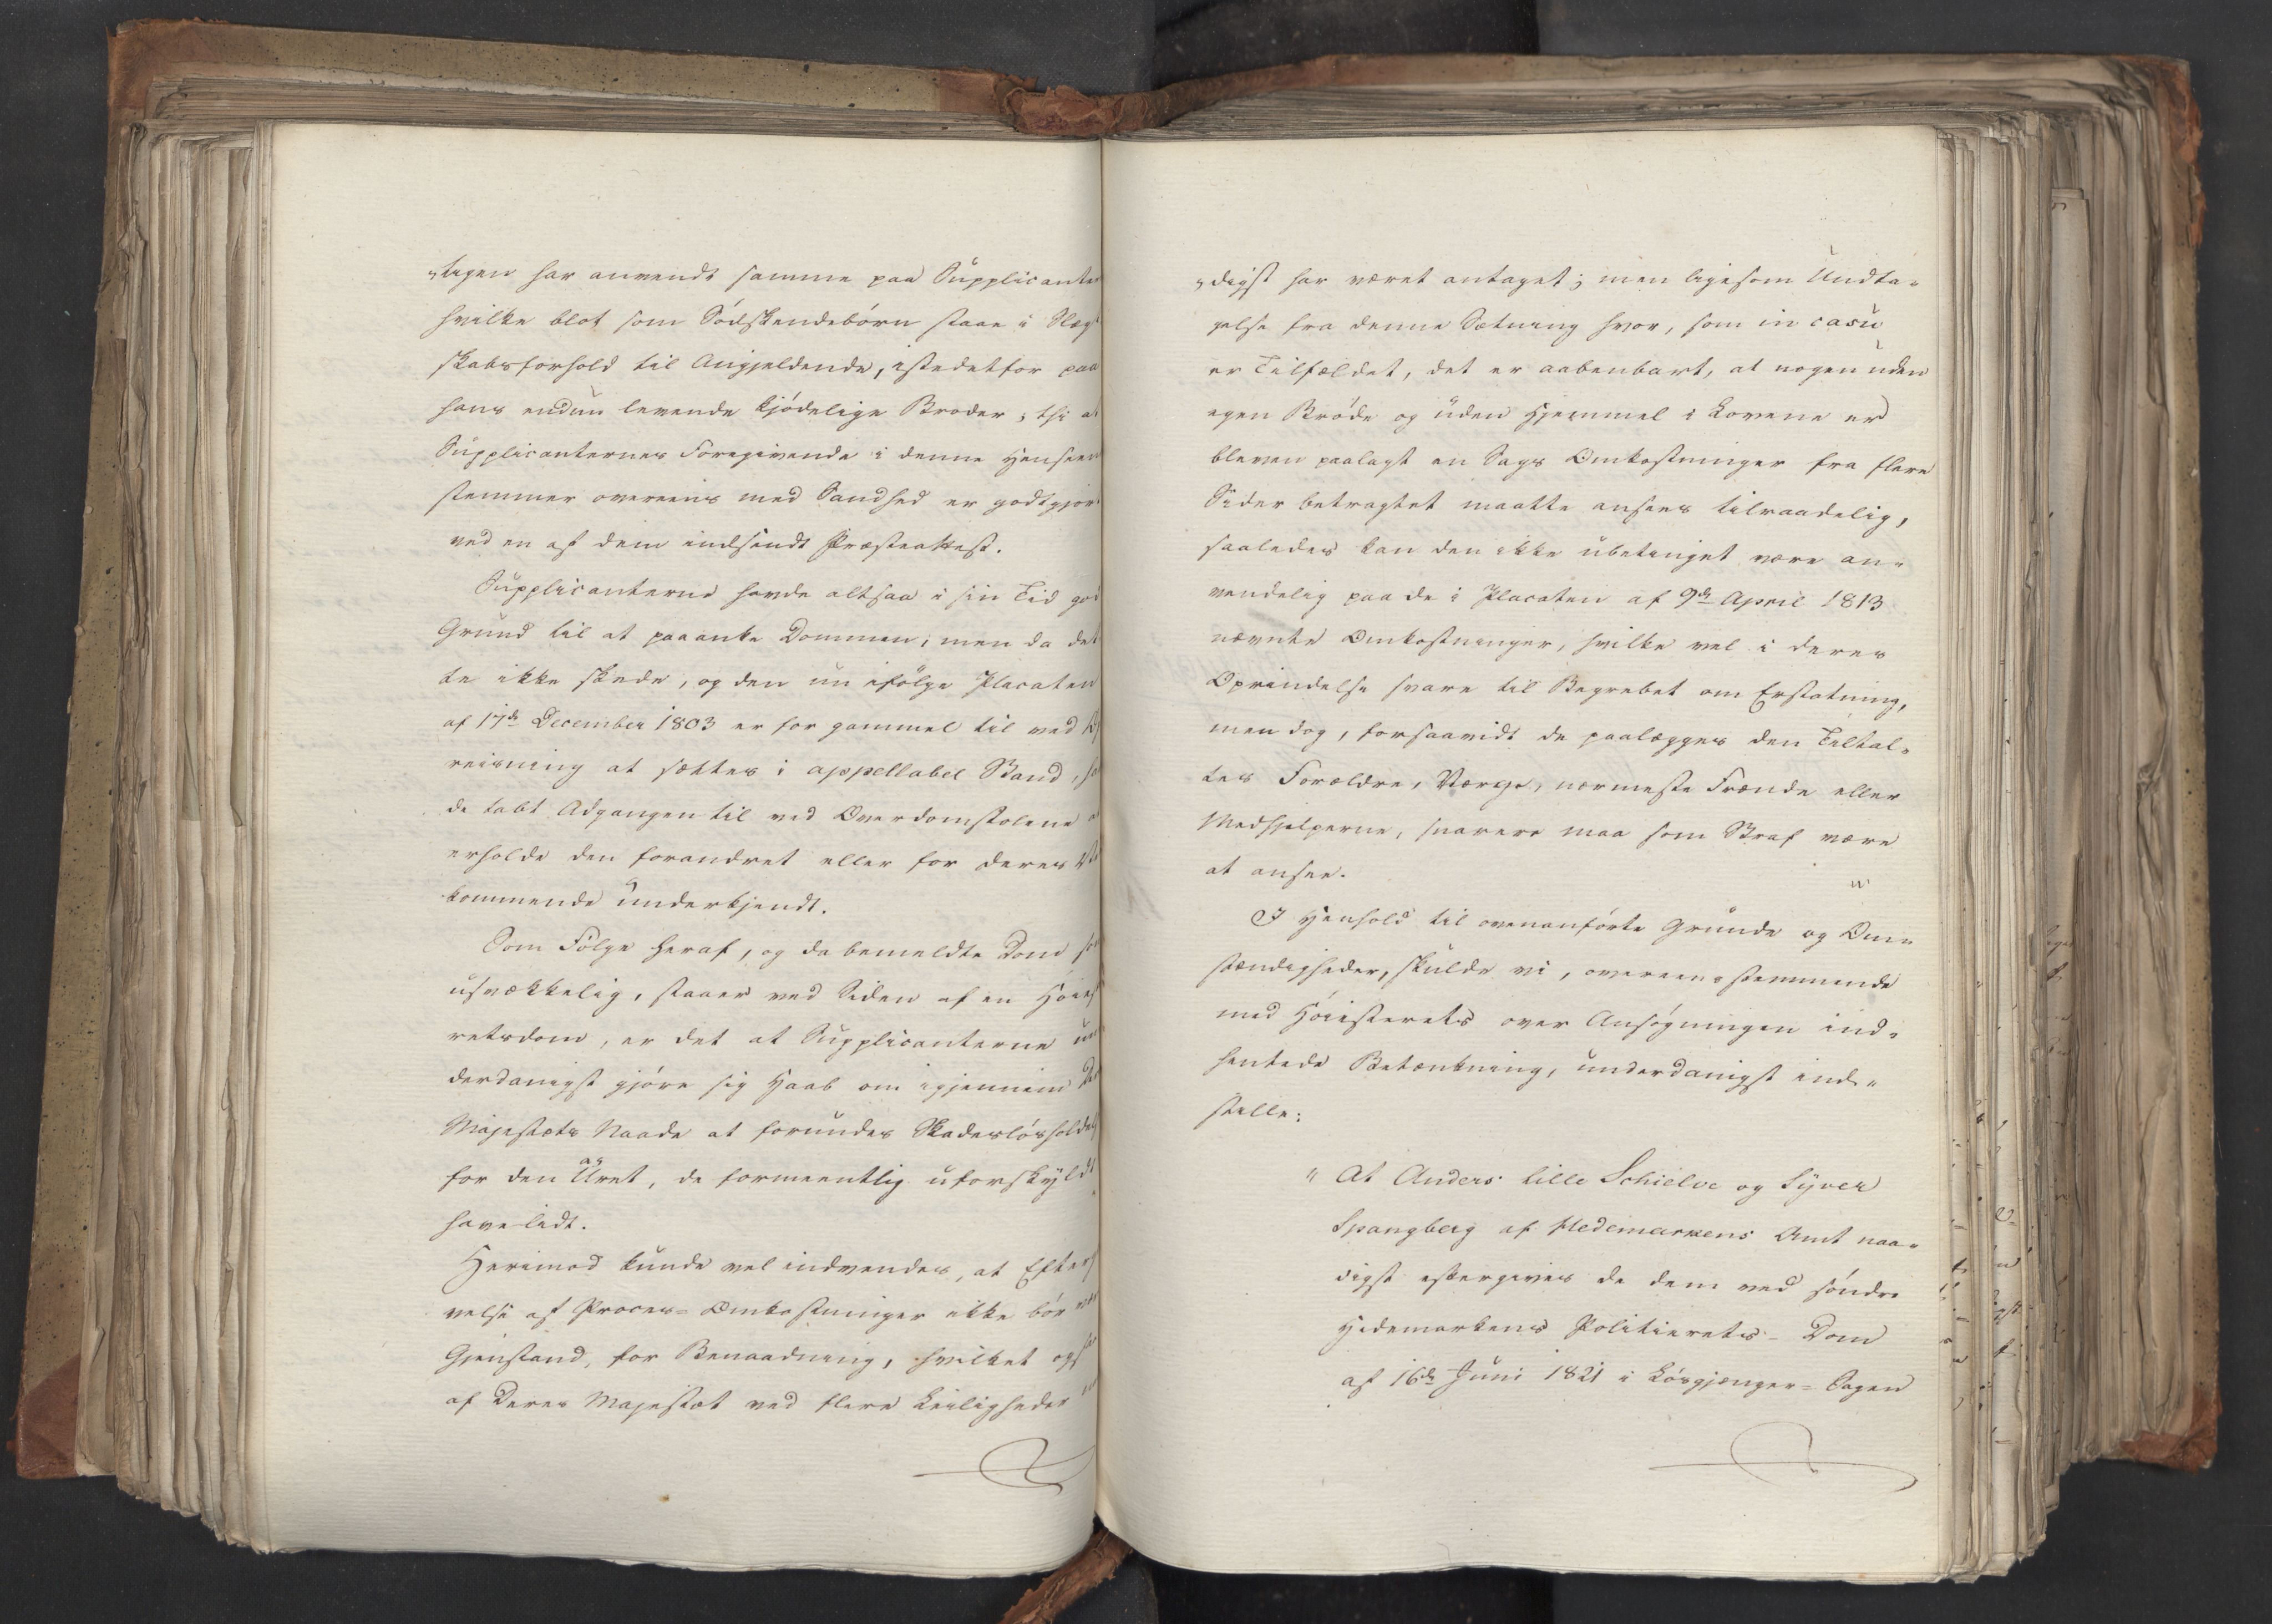 „tigen har anvendt samme paa Supplicanter
hvilke blot som Södskendebörn staae i Slægt
skabsforhold til Angjeldende, istedetfor paa
hans endnu levende kjödelige Broder; thi at
Supplicanternes Foregivende i denne Henseen
stemmer overeens med Sandhed er godtgjor
ved en af dem indsendt Præsteattest.
Supplicanterne havde altsaa i sin Tid god
Grund til at paaanke Dommen; men da det
te ikke skede, og den nu ifölge Placaten
af 17de December 1803 er for gammel til ved
reisning at sættes i appellabel Stand, ha
de tabt Adgangen til ved Overdomstolene a
erholde den forandret eller for deres Ved
kommende underkjendt.
Som Fölge heraf, og da bemeldte Dom som
usvækkelig, staaer ved Siden af en Höiest
retsdom, er det at Supplicanterne un
derdanigst gjöre sig Haab om igjennem De
Majestæts Naade at forundes Skadeslösholdel
for den Uret, de formeentlig uforskyldt
have lidt.
Herimod kunde vel indvendes, at Efter
velse af Proces=Omkostninger ikke bör vær
Gjenstand, for Benaadning, hvilket ogsaa
af Deres Majestæt ved flere Leiligheder
„digst har været antaget; men ligesom Undta„
gelse fra denne Sætning hvor, som in casu
er Tilfældet, det er aabenbart, at nogen uden
egen Bröde og uden Hjemmel i Lovene er
bleven paalagt en Sags Omkostninger fra flere
Sider betragtet maatte ansees tilraadelig,
saaledes kan den ikke ubetinget være an„
vendelig paa de i Placaten af 9de April 1813
nævnte Omkostninger, hvilke vel i deres
Oprindelse svare til Begrebet om Erstatning,
men dog, forsaavidt de paalægges den Tiltal„
tes Forældre, Værge, nærmeste Frænde eller
Medhjelperne, snarere maa som Straf være
at ansee.
I Henhold til ovenanförte Grunde og Om„
stændigheder, skulde vi, overeensstemmende
med Höiesterets over Ansögningen ind„
hentede Betænkning, underdanigst ind„
stille:
„ At Anders lille Schielve og Syver
Spangberg af Hedemarkens Amt naa„
digst eftergives de dem ved söndre
Hedemarkens Politierets=Dom
af 16de Juni 1821 i Lösgjænger=Sagen